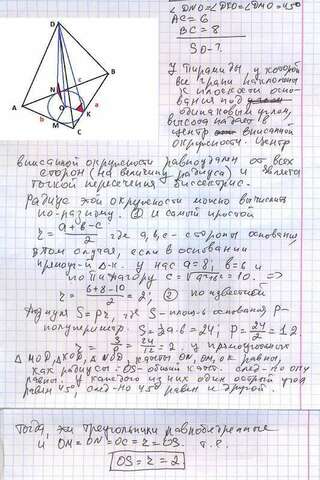 ∠DNO=∠DKO=∠DMO=45°
AC=6
BC=8
SO-?
У пирамиды, у которой
все грани наклонены
к плоскости осно-
вания под
одинаковым углом,
высота падает в
центр вписанной
окружности. Центр
вписанной окружности равноудалён от всех
сторон (на величину радиуса) и является
точкой пересечения биссектрис.
Радиус этой окружности можно вычислить
по-разному. ① и самый простой
r = a+b-c / 2 где a, b, c - стороны основания
для случая, если в основании
прямоуг-й Δ-к. у нас a=8, b=6 и
по Пифагору c=√a²+b²=10. ⇒
r = 6+8-10 / 2 = 2; ② по известной
формуле S=pr, где S-площ-ь основания, p-
полупериметр. S=½ab=24; P=24/2=12
r = S/p = 24/12 = 2, у прямоугольных
Δ MOD, ΔKOD, ΔNOD, катеты ON, OM, OK равны,
как радиусы, OS-общий катет. след-но они
равны. у каждого из них один острый угол
равен 45°, след-но 45° равен и другой.
Тогда, эти треугольники равнобедренные
и OM=ON=OC=r=OS. т.е.
OS=r=2
D
B
A
C
N
K
M
O
a
b
c